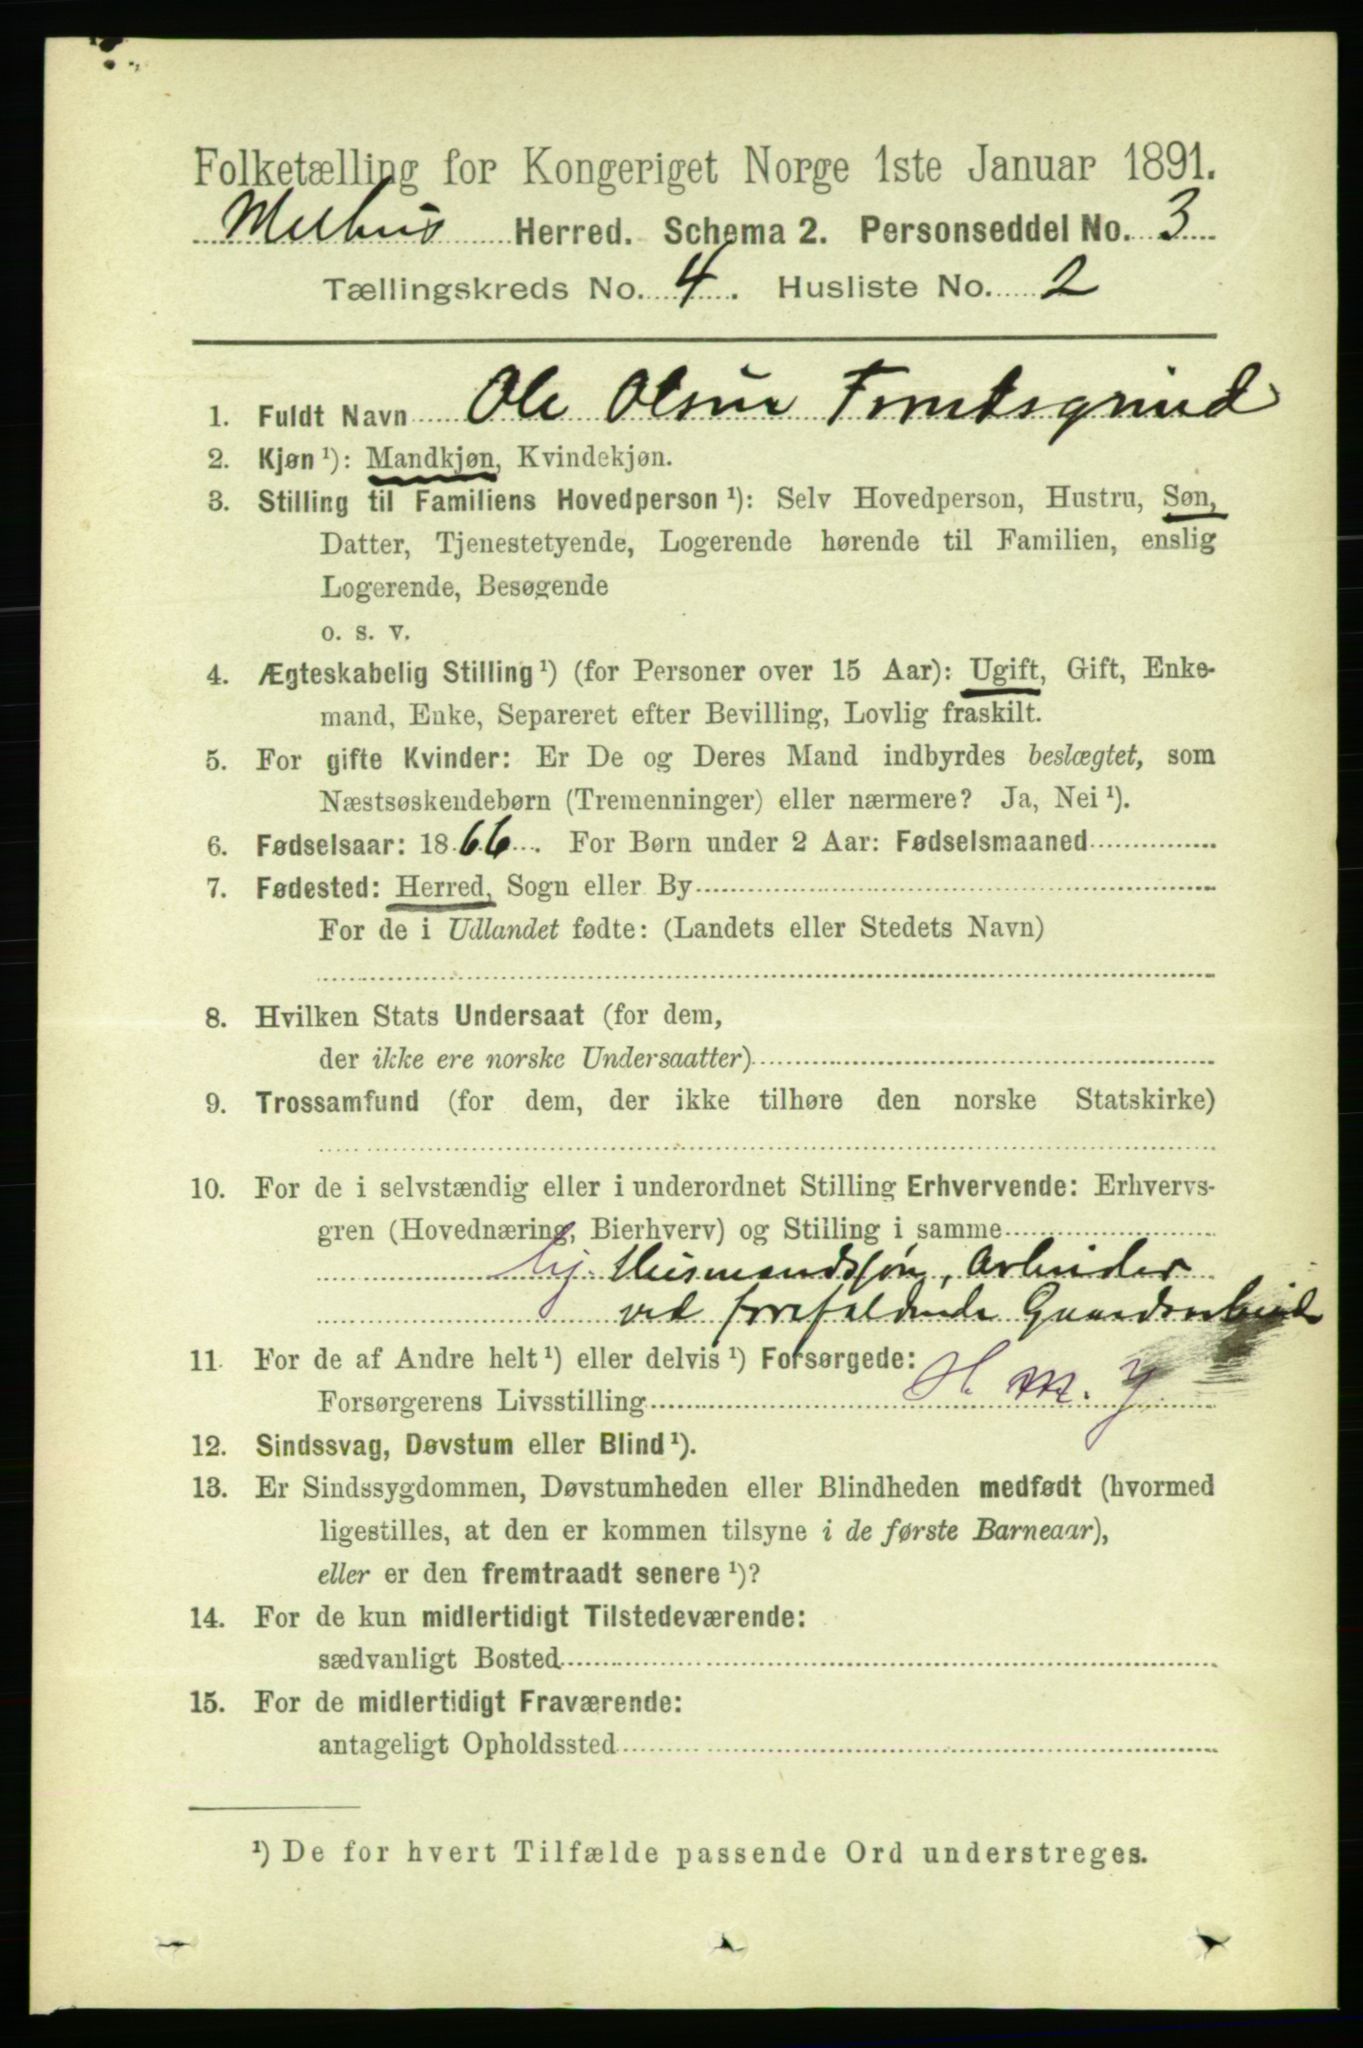 Folketælling for Kongeriget Norge 1ste Januar 1891.
Melhus Herred. Schema 2. Personseddel No. 3
Tællingskreds No. 4. Husliste No. 2
1. Fuldt Navn Ole Olsen
2. Kjøn ¹): Mandkjøn, Kvindekjøn.
3. Stilling til Familiens Hovedperson ¹): Selv Hovedperson, Hustru, Søn,
Datter, Tjenestetyende, Logerende hørende til Familien, enslig
Logerende, Besøgende
o. s. v.
4. Ægteskabelig Stilling ¹) (for Personer over 15 Aar): Ugift, Gift, Enke-
mand, Enke, Separeret efter Bevilling, Lovlig fraskilt.
5. For gifte Kvinder: Er De og Deres Mand indbyrdes beslægtet, som
Næstsøskendebørn (Tremenninger) eller nærmere? Ja, Nei ¹).
6. Fødselsaar: 1866. For Børn under 2 Aar: Fødselsmaaned
7. Fødested: Herred, Sogn eller By
For de i Udlandet fødte: (Landets eller Stedets Navn)
8. Hvilken Stats Undersaat (for dem,
der ikke ere norske Undersaatter)
9. Trossamfund (for dem, der ikke tilhøre den norske Statskirke)
10. For de i selvstændig eller i underordnet Stilling Erhvervende: Erhvervs-
gren (Hovednæring, Bierhverv) og Stilling i samme
Husmandssøn, Arbeider
ved forefaldende Gaardsarbeide
11 For de af Andre helt ¹) eller delvis ¹) Forsørgede:
Forsørgerens Livsstilling H. m. J
12. Sindssvag, Døvstum eller Blind ¹).
13. Er Sindssygdommen, Døvstumheden eller Blindheden medfødt (hvormed
ligestilles, at den er kommen tilsyne i de første Barneaar),
eller er den fremtraadt senere ¹)?
14. For de kun midlertidigt Tilstedeværende:
sædvanligt Bosted
15. For de midlertidigt Fraværende:
antageligt Opholdssted
¹) De for hvert Tilfælde passende Ord understreges.